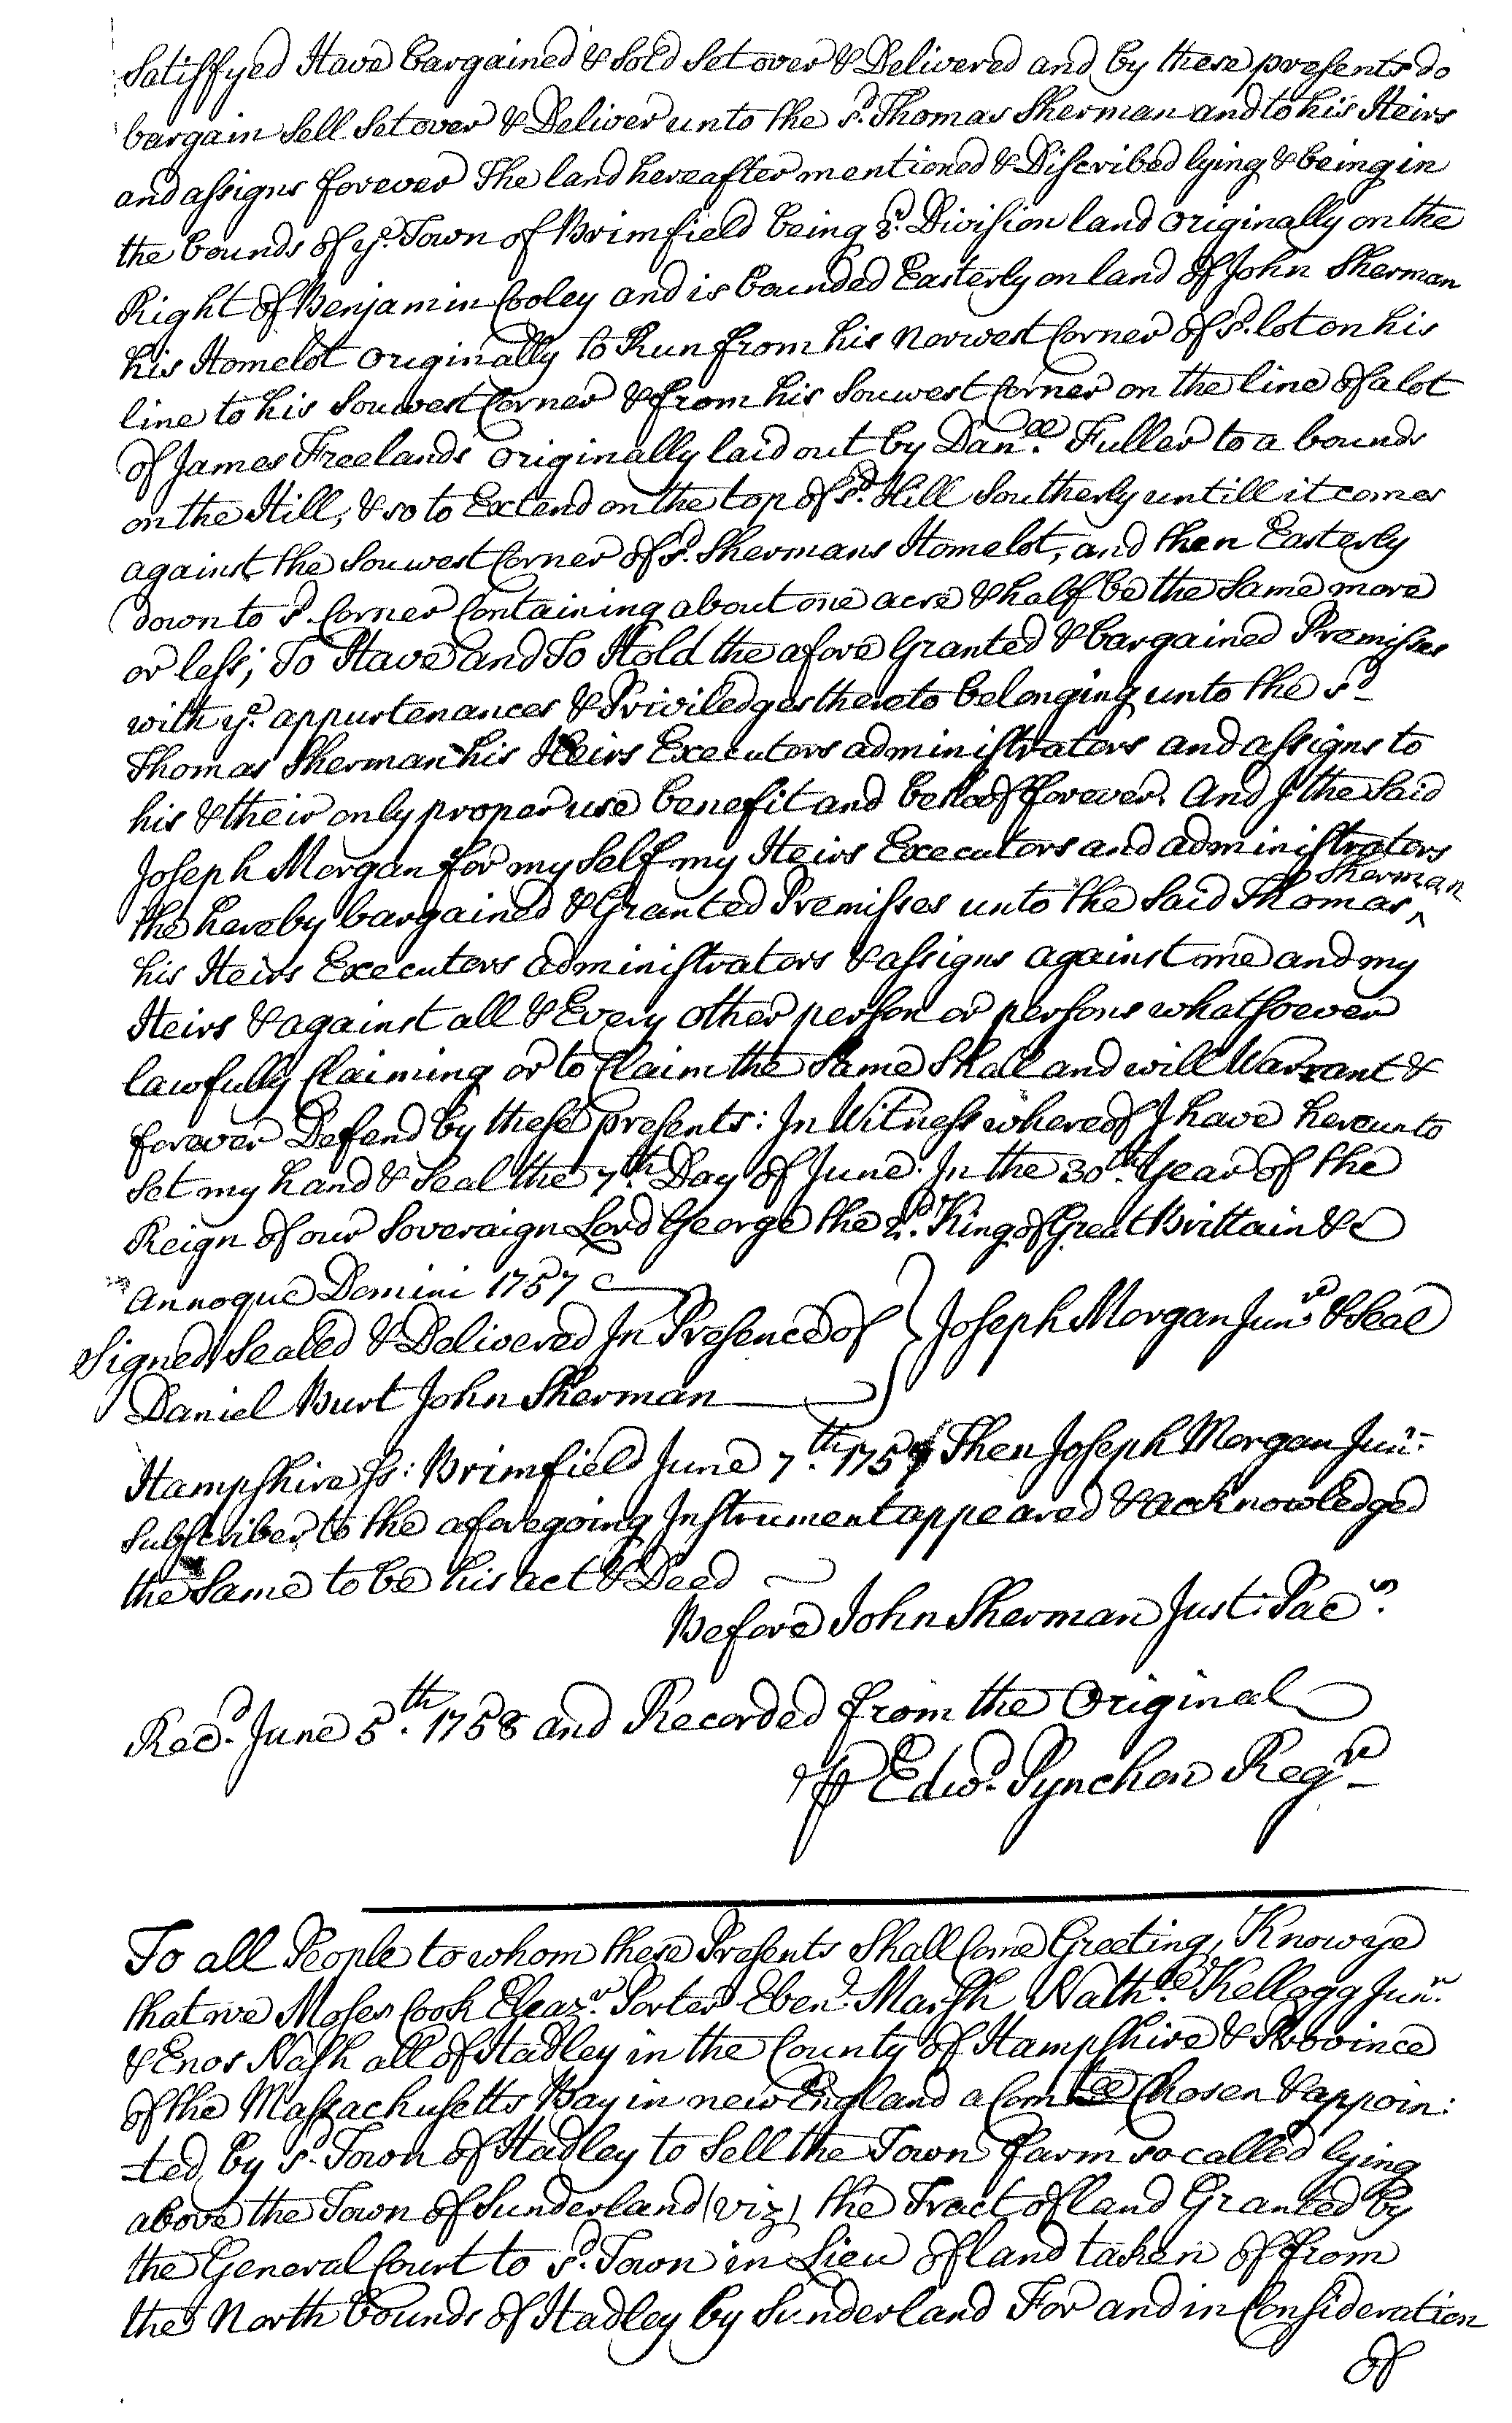 Satisfyed Have bargained & Sold Set over & Delivered and by these presents do
bargain Sell Set over & Deliver unto the sd. Thomas Sherman and to his Heirs
and assigns forever The land hereafter mentioned & Discribed lying & being in
the bounds of ye. Town of Brimfield being 2d. Division land originally on the
Right of Benjamin Cooley and is bounded Easterly on land of John Sherman
his Homelot originally to Run from his norwest Corner of sd. lot on his
line to his Souwest Corner & from his Souwest Corner on the line of a lot
of James Freelands originally laid out by Danll. Fuller to a bounds
on the Hill, & so to Extend on the top of sd. Hill Southerly untill it comes
against the Souwest Corner of sd. Shermans Homelot, and then Easterly
down to sd. Corner Containing about one acre & half be the Same more
or less; To Have and To Hold the afore Granted & bargained Premisses
with ye. appurtenances & Priviledges thereto belonging unto the sd
Thomas Sherman his Heirs Executors administrators and assigns to
his & their only proper use benefit and behoof forever. And I the Said
Joseph Morgan for my Self my Heirs Executors and administrators
the hereby bargained & Granted Premisses unto the Said Thomas ^ Sherman
his Heirs Executors administrators & assigns against me and my
Heirs & against all & Every other person or persons whatsoever
lawfully Claiming or to Claim the Same Shall and will Warrant &
forever Defend by these presents: In Witness whereof I have hereunto
Set my hand & Seal the 7th. Day of June. In the 30th. Year of the
Reign of our Soveraign Lord George the 2d. King of Great Brittain &c
Annoque Domini 1757
Signed Sealed & Delivered In Presence of } Joseph Morgan Junr & Seal
Daniel Burt John Sherman
Hampshire Ss: Brimfield June 7th. 1757 Then Joseph Morgan Junr.
Subscriber to the aforegoing Instrument appeared & acknowledged
the Same to be his act & Deed
Before John Sherman Just: Pacs.
Recd. June 5th. 1758 and Recorded from the Original
⅌ Edwd. Pynchon Regr
To all People to whom these Presents Shall Come Greeting, Know ye
that we Moses Cook Eleazr. Porter Ebenr. Marsh Nathll. Kellogg Junr.
& Enos Nash all of Hadley in the County of Hampshire & Province
of the Massachusetts Bay in new England a Comtee Chosen & appoin:
-ted by sd. Town of Hadley to Sell the Town farm so called lying
above the Town of Sunderland (viz) the Tract of land Granted by
the General Court to sd. Town in Lieu of land taken off from
the North bounds of Hadley by Sunderland For and in Consideration
of